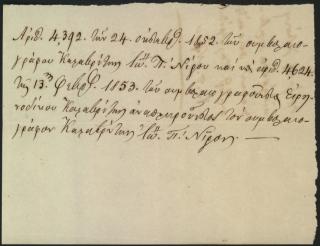 Αριθ. 4,392. τῆν 24. οκτωβρ. 1852. τοῦ συμβολαιο-
γράφου Καλαβρύτης Ἰω. Π. Νίρου καὶ ὑπ' ἀριθ. 4624.
τῆς 13. Φεβρ. 1853. τοῦ συμβολαιογραφοῦντος Εἰρη-
νοδίκου Καλαβρύτης ἀναπληροῦντος τὸν συμβολαιο-
γράφον Καλαβρύτης Ἰω. Π. Νίρον.